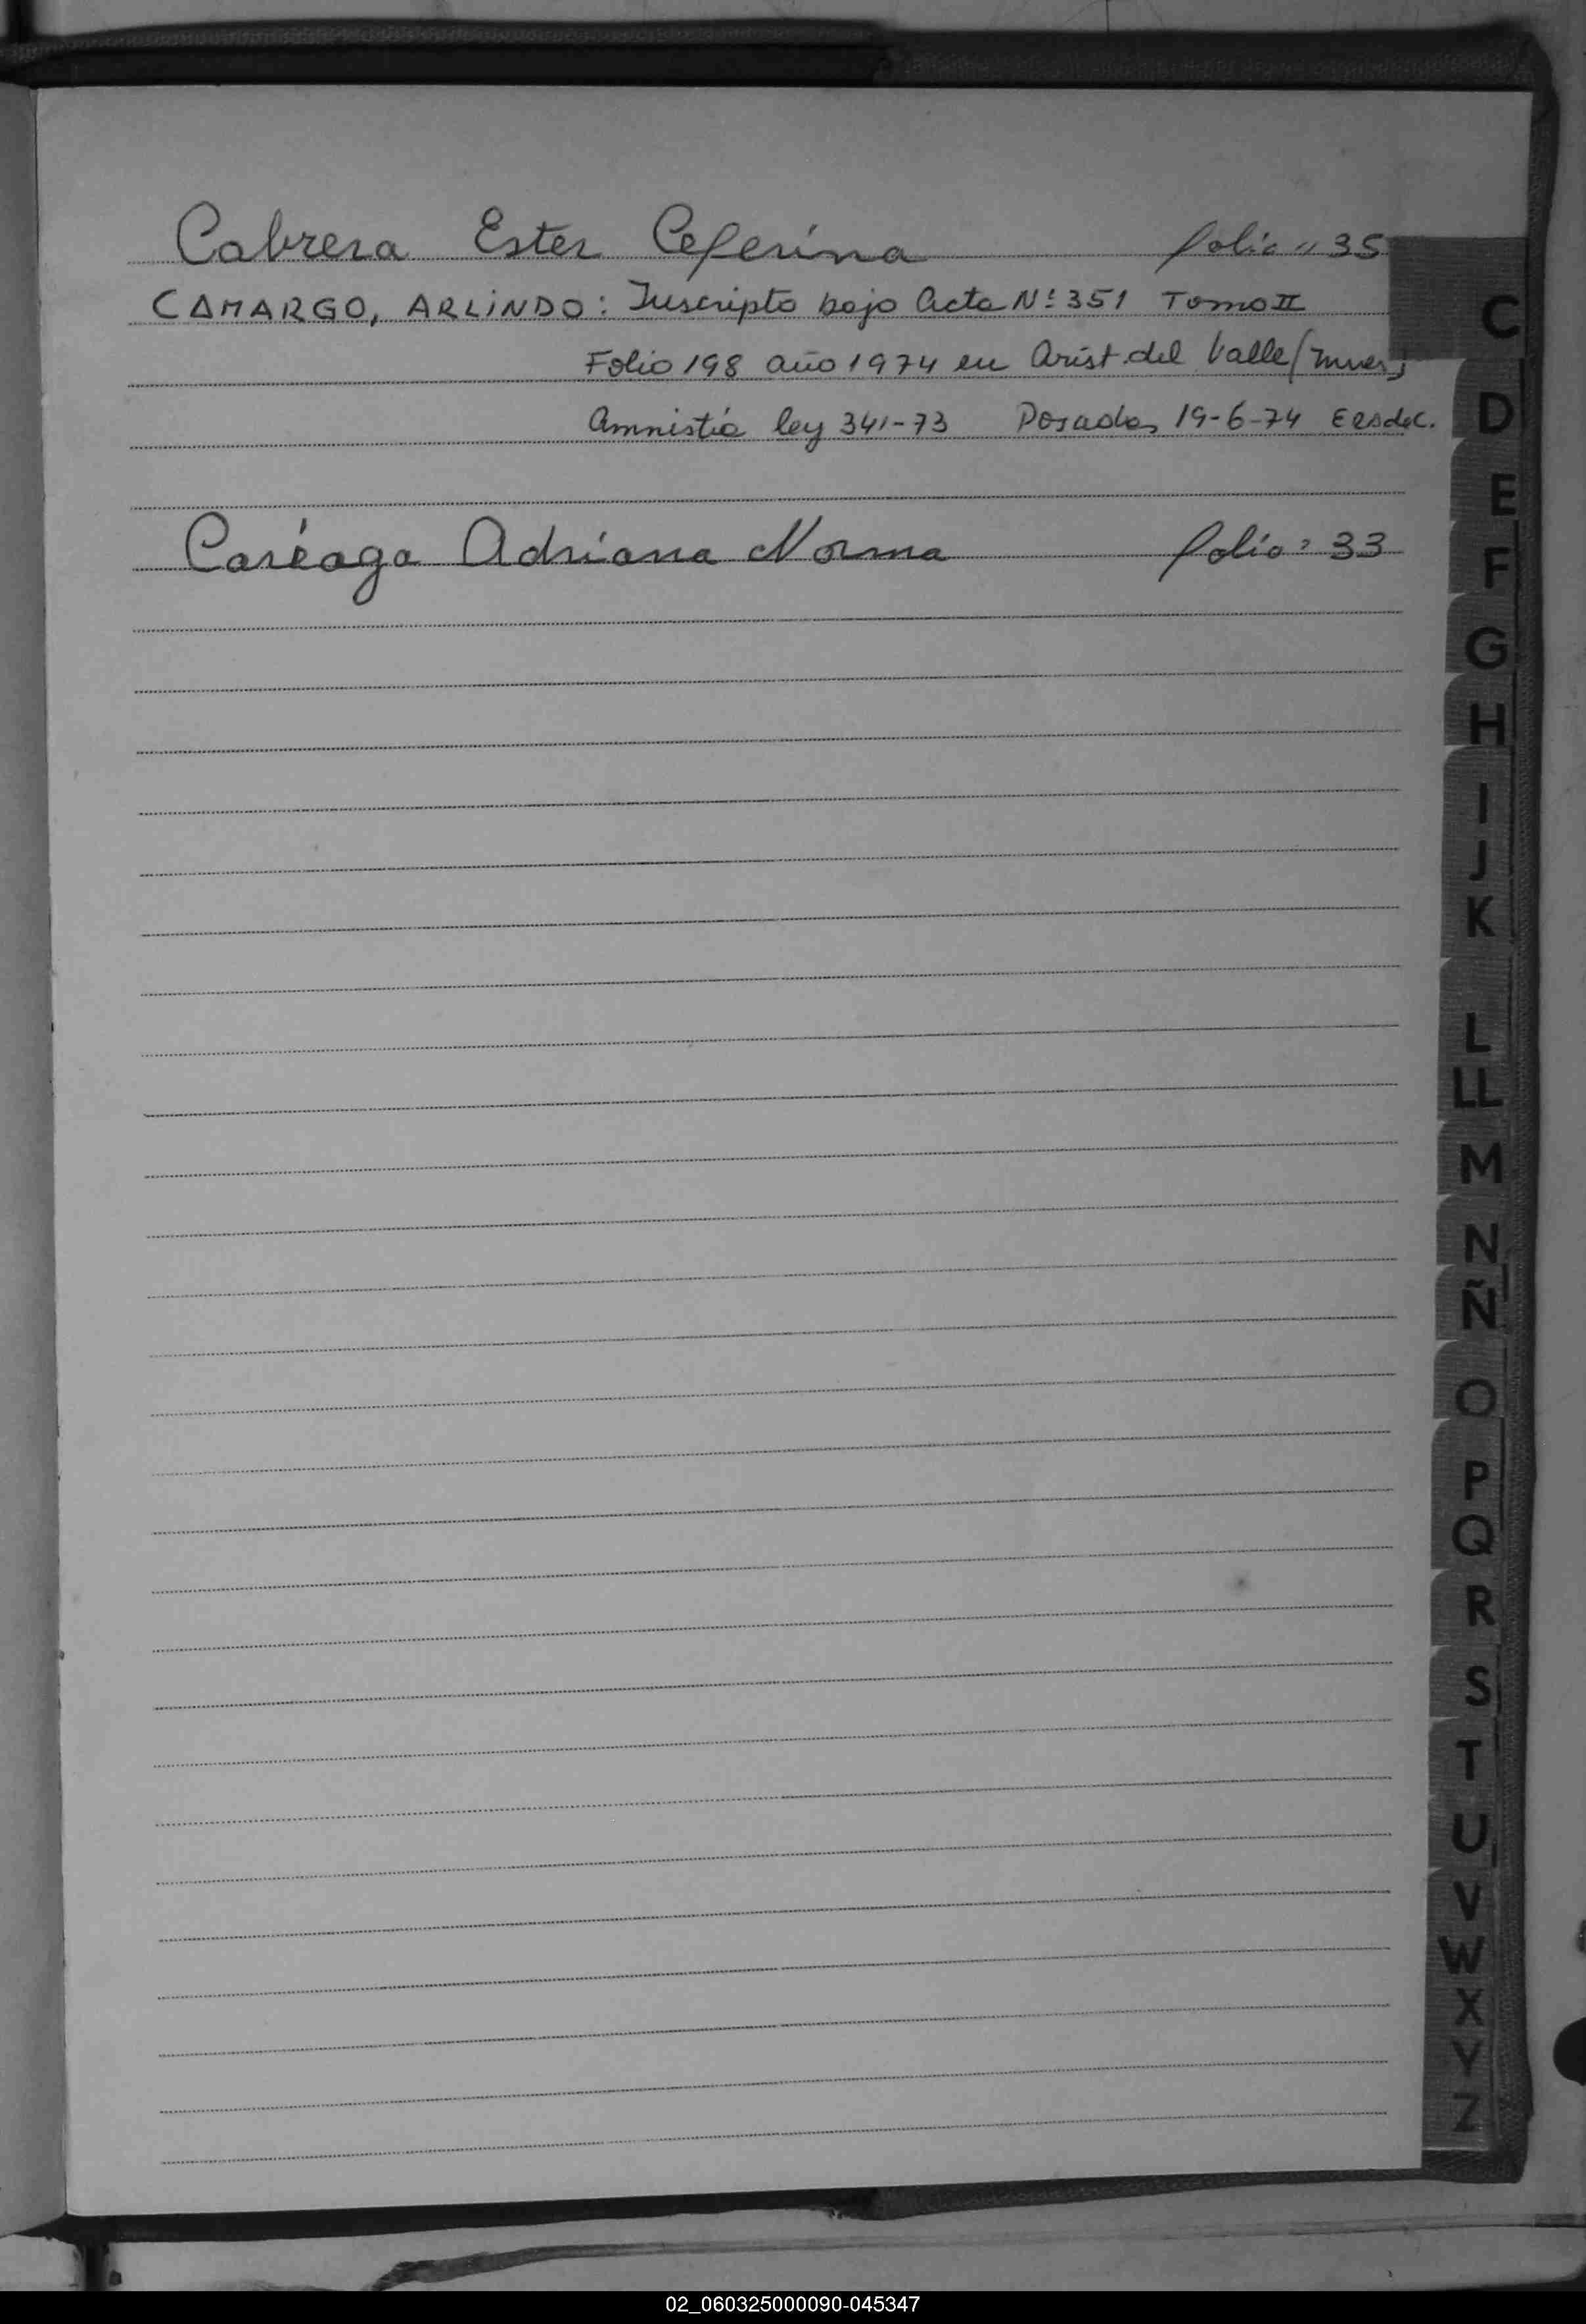 Cabrera Ester Ceferina folio " 35
CAMARGO, ARLINDO: Inscripto bajo Acta Nº 351 Tomo II
Folio 198 año 1974 en Arist. del Valle
Amnistía ley 341-73 Posadas 19-6-74
Caréaga Adriana Norma folio: 33
C
D
E
F
G
H
I
J
K
L
LL
M
N
Ñ
O
P
Q
R
S
T
U
V
W
X
Y
Z
02_060325000090-045347